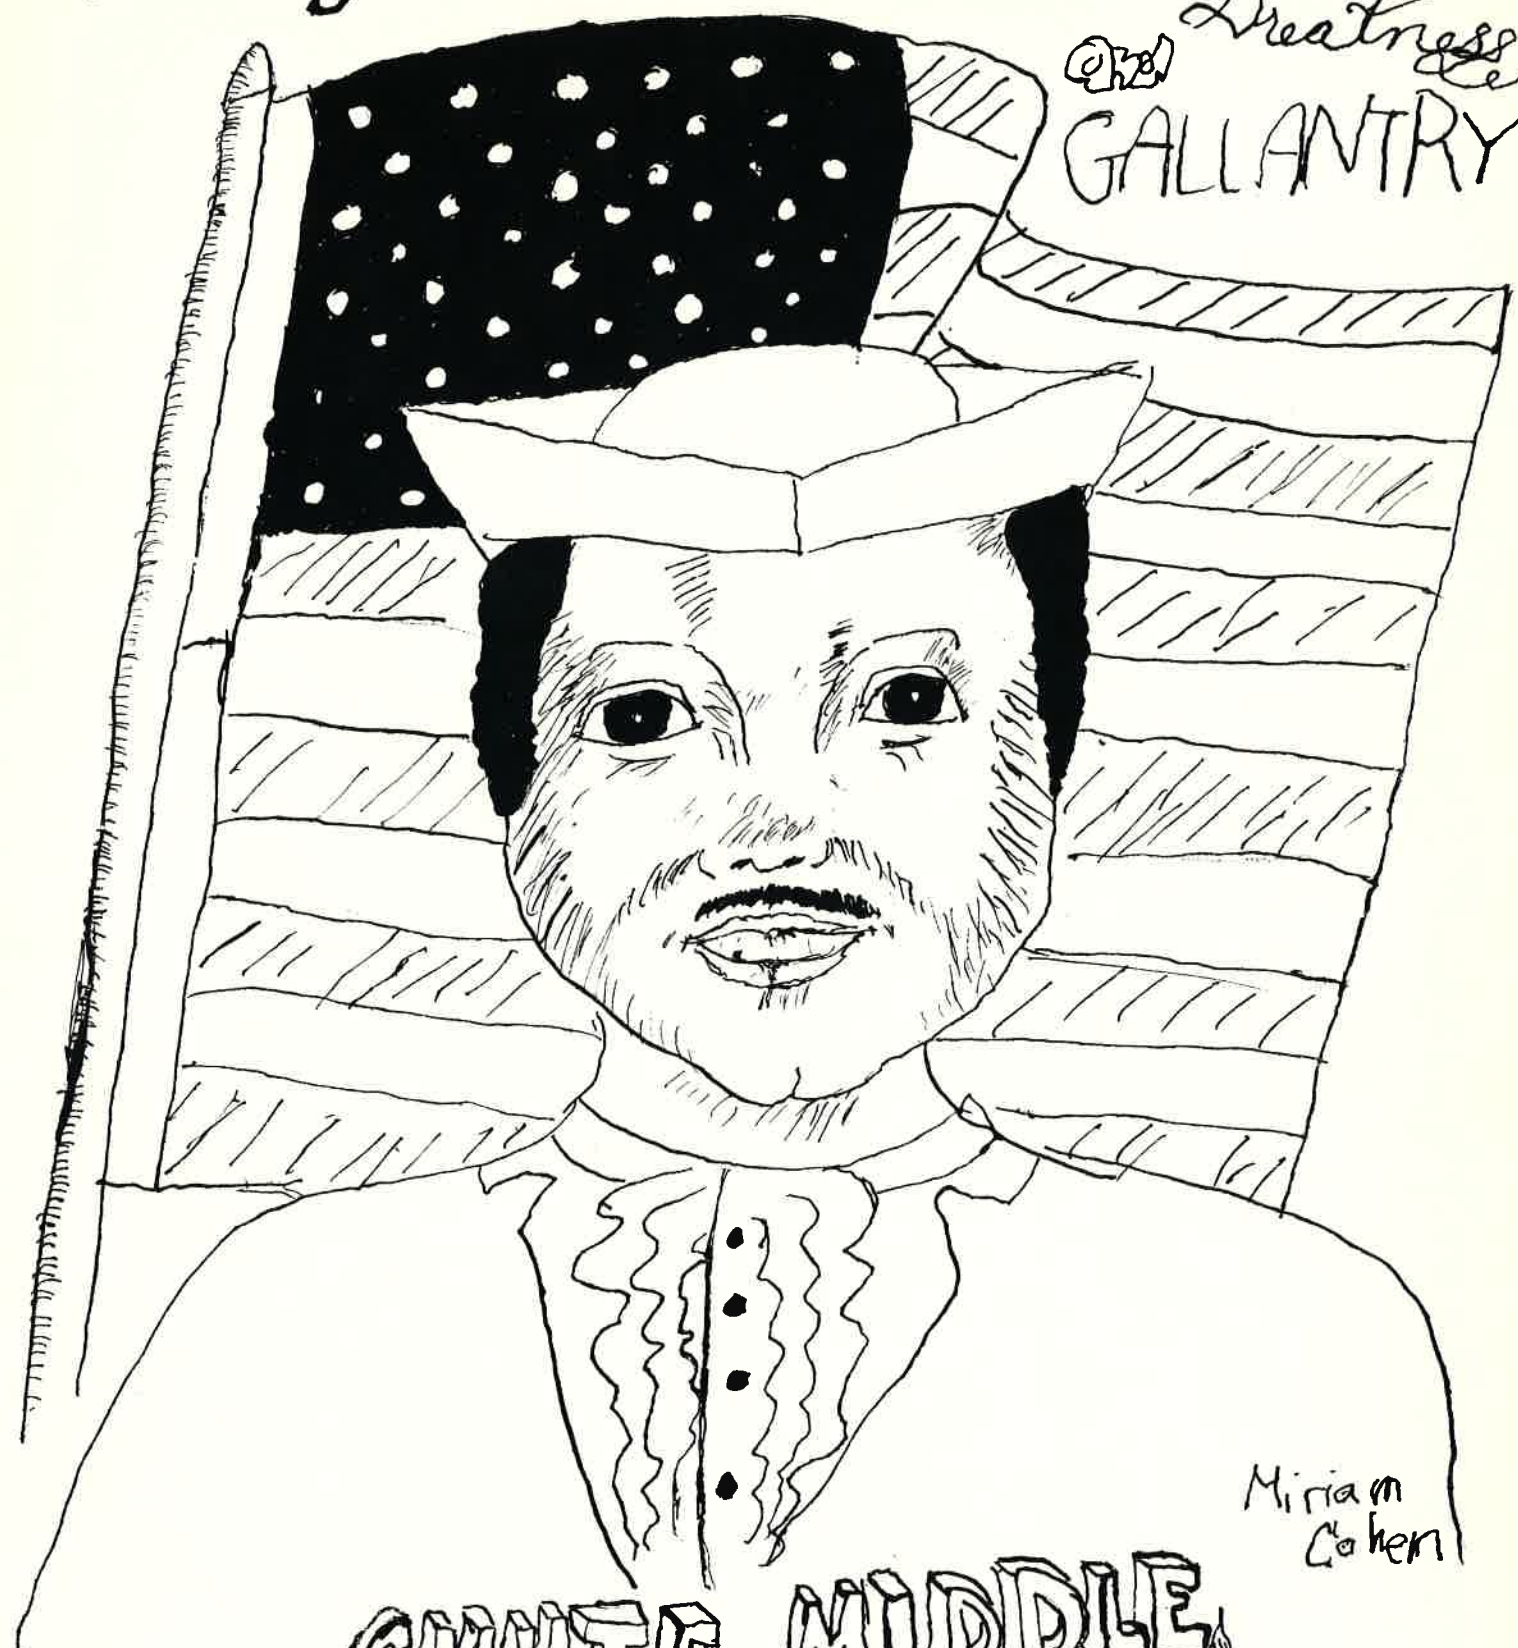 Greatness
and
GALLANTRY
Miriam
Cohen
MIDDLE